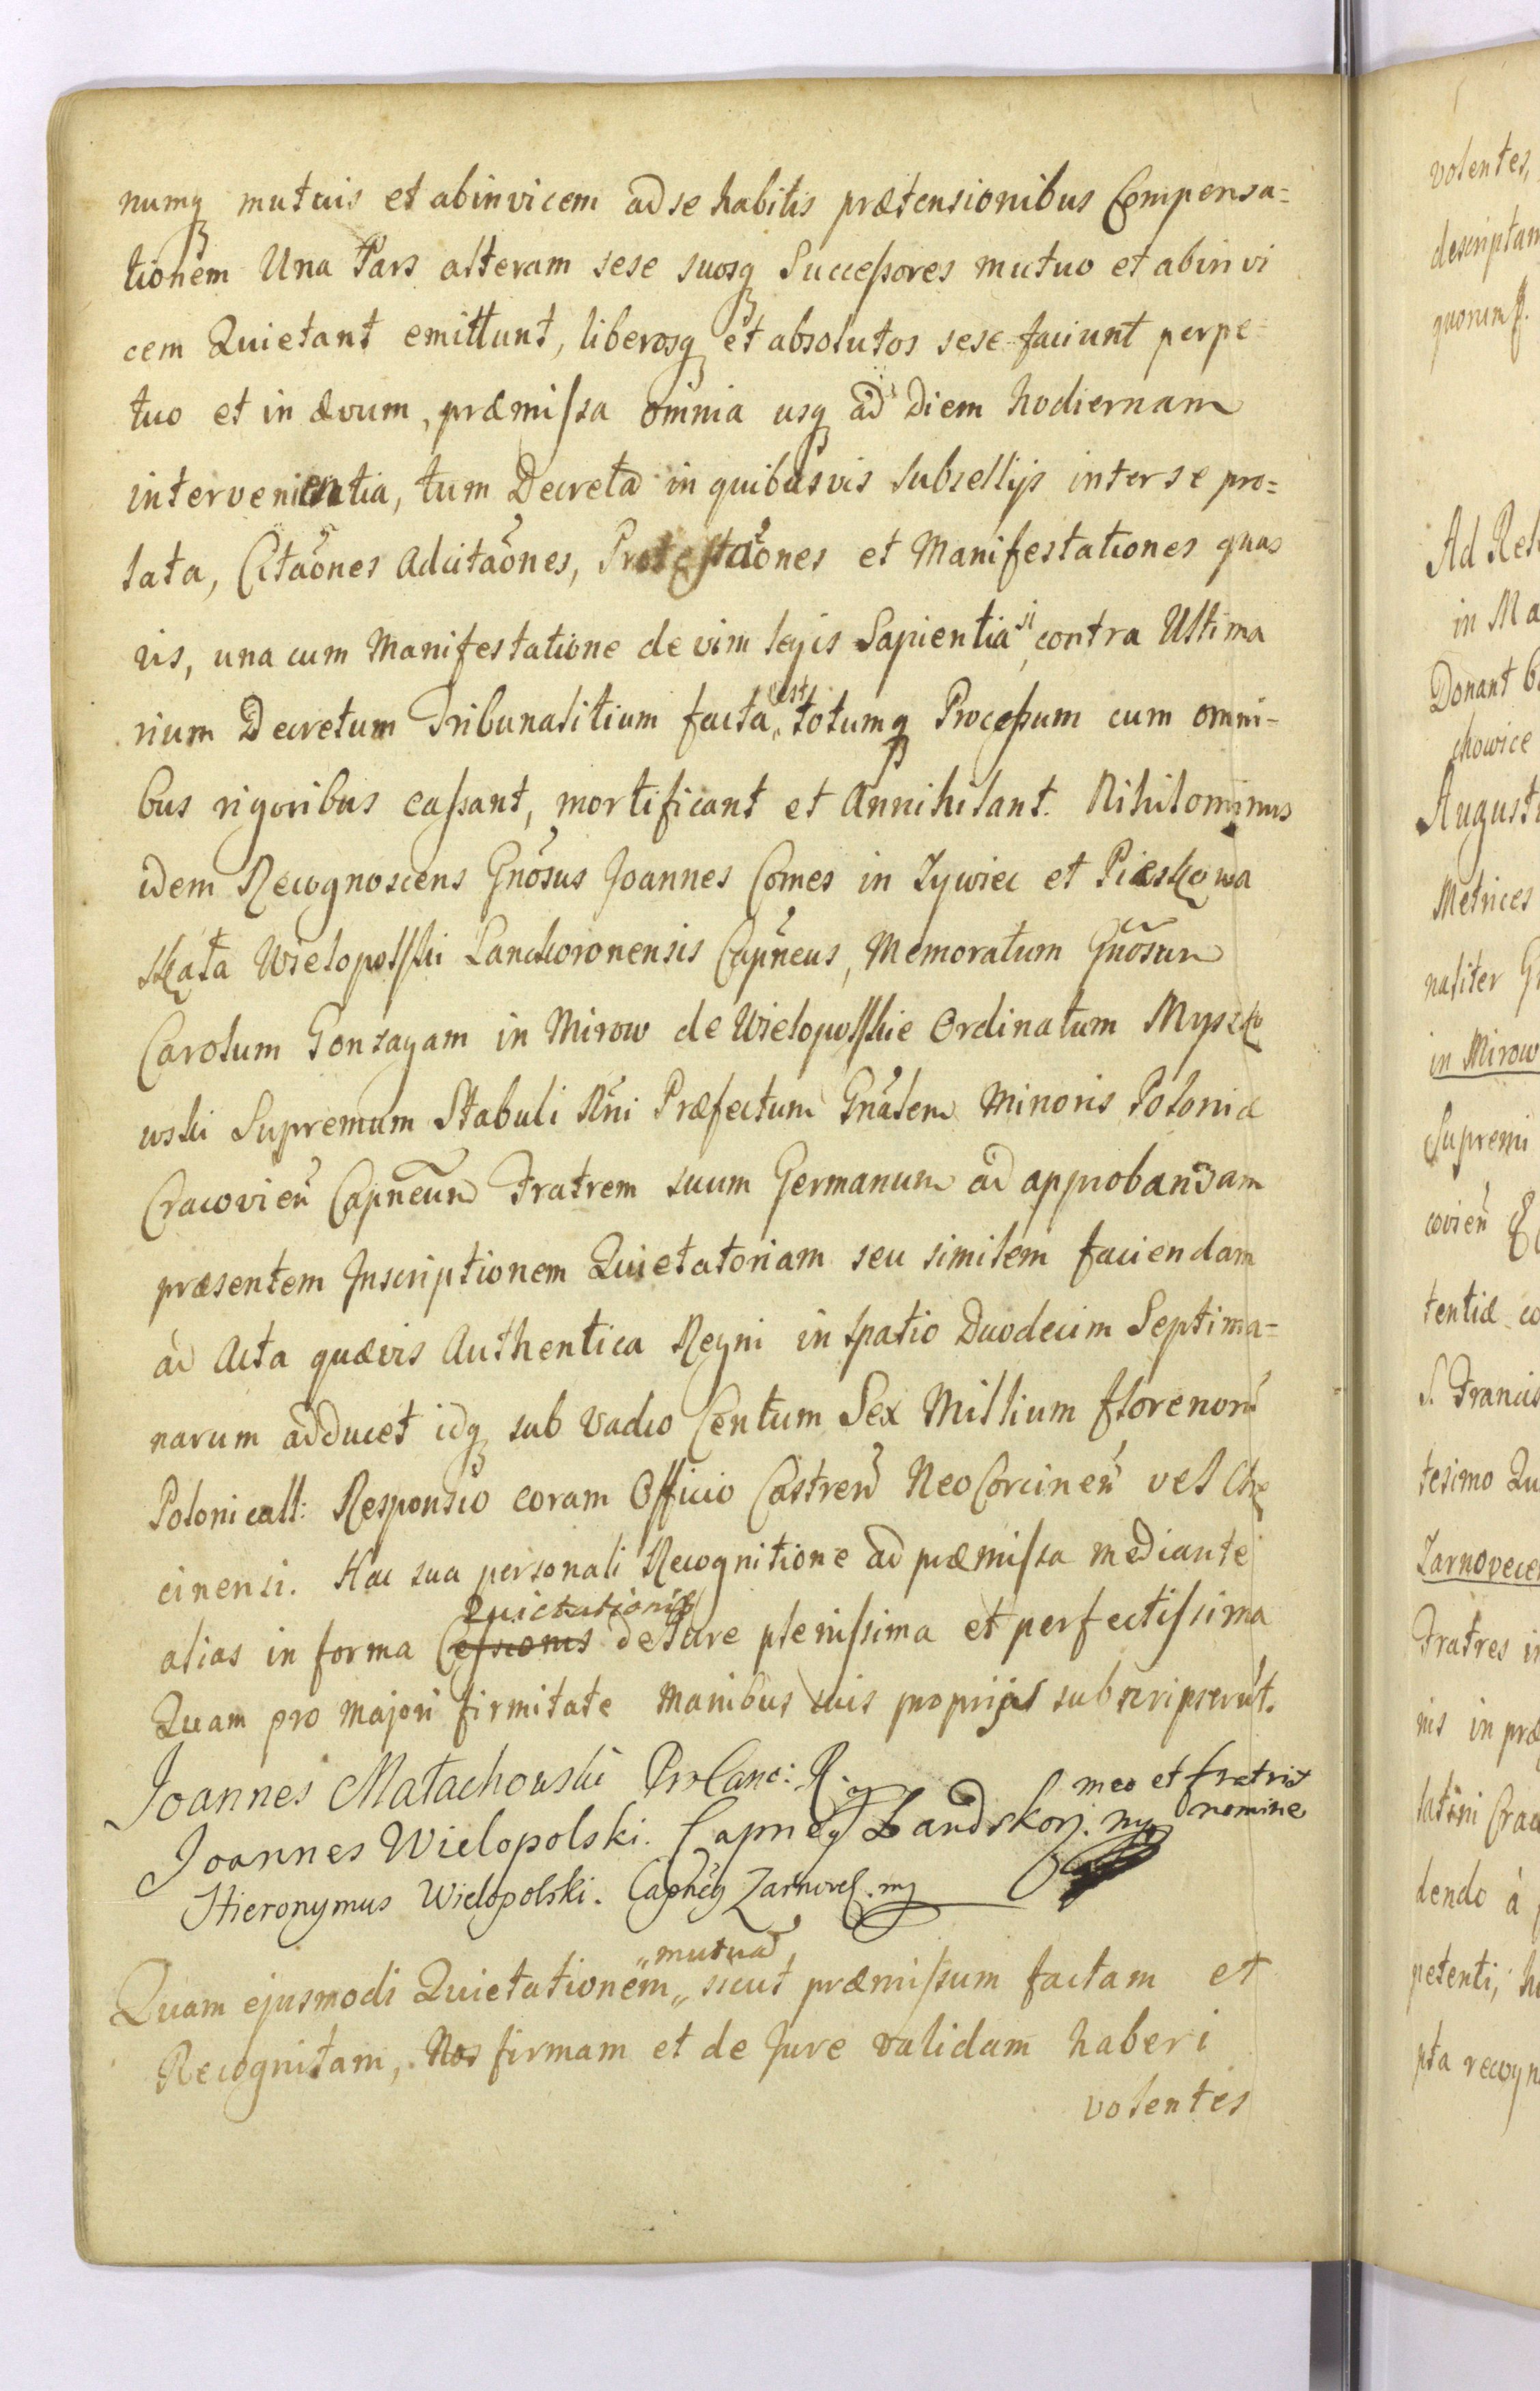 numq mutuis et abinvicem ad se habitis prætensionibus Compensa=
tionem Una Pars alteram sese suosq Successores mutuo et abinvi
cem Quietant emittunt, liberosq et absolutos sese faciunt perpe=
tuo et in ævum, præmissa omnia usq ad Diem hodiernam
intervenientia, tum Decreta in quibusvis Subsellijs inter se pro=
lata, Citaõnes Adcitaõnes, Protestaõnes et Manifestationes quas
vis, una cum Manifestatione de vim legis Sapientia, contra Ultima
est
rium Decretum Tribunalitium facta „ totumq Processum cum omni-
bus rigoribus cassant, mortificant et Annihilant. Nihilominus
idem Recognoscens Gnõsus Joannes Comes in Zywiec et Pieskowa
Skała Wielopolski Lanckoronensis Capñeus, Memoratum Gnõsum
Carolum Gonzagam in Mirow de Wielopolskie Ordinatum Myszko
wski Supremum Stabuli Rñi Præfectum Gnãlem Minoris Poloniæ
Cracovieñ Capñeum Fratrem suum Germanum ad approbandam
præsentem Inscriptionem Quietatoriam seu similem faciendam
ad Acta quævis Authentica Regni in spatio Duodecim Septima=
narum adducet idq sub Vadio Centum Sex Millium florenorũ
Polonicall: Responsio coram Officio Castreñ NeoCorcineñ vel Che
cinensi. Hac sua personali Recognitione ad præmissa mediante
Quietationis
alias in forma Cessionis de Jure plenissima et perfectissima
Quam pro majori firmitate manibus suis proprijs subscripserũt.
Joannes Małachowski ProCanc: R.
meo et fratris
nomine
Joannes Wielopolski. Capneg Landskor. mp
Hieronymus Wielopolski. Capñeg Zarnovec. mp
„mutuad
Quam ejusmodi Quietationem „ sicut præmissum factam et
Recognitam, Nos firmam et de Jure validam haberi
volentes
volentes,
descriptam
quorum
Ad Rel
in Ma
Donant
chowice
Augusti
Metrices
naliter
in Mirow
Supremi
covieñ
tentiæ co
S. Francis
tesimo Qu
Zarnovecen
Fratres in
nis in præ
latoni Crac
dendo à
petenti, h
pta recogn